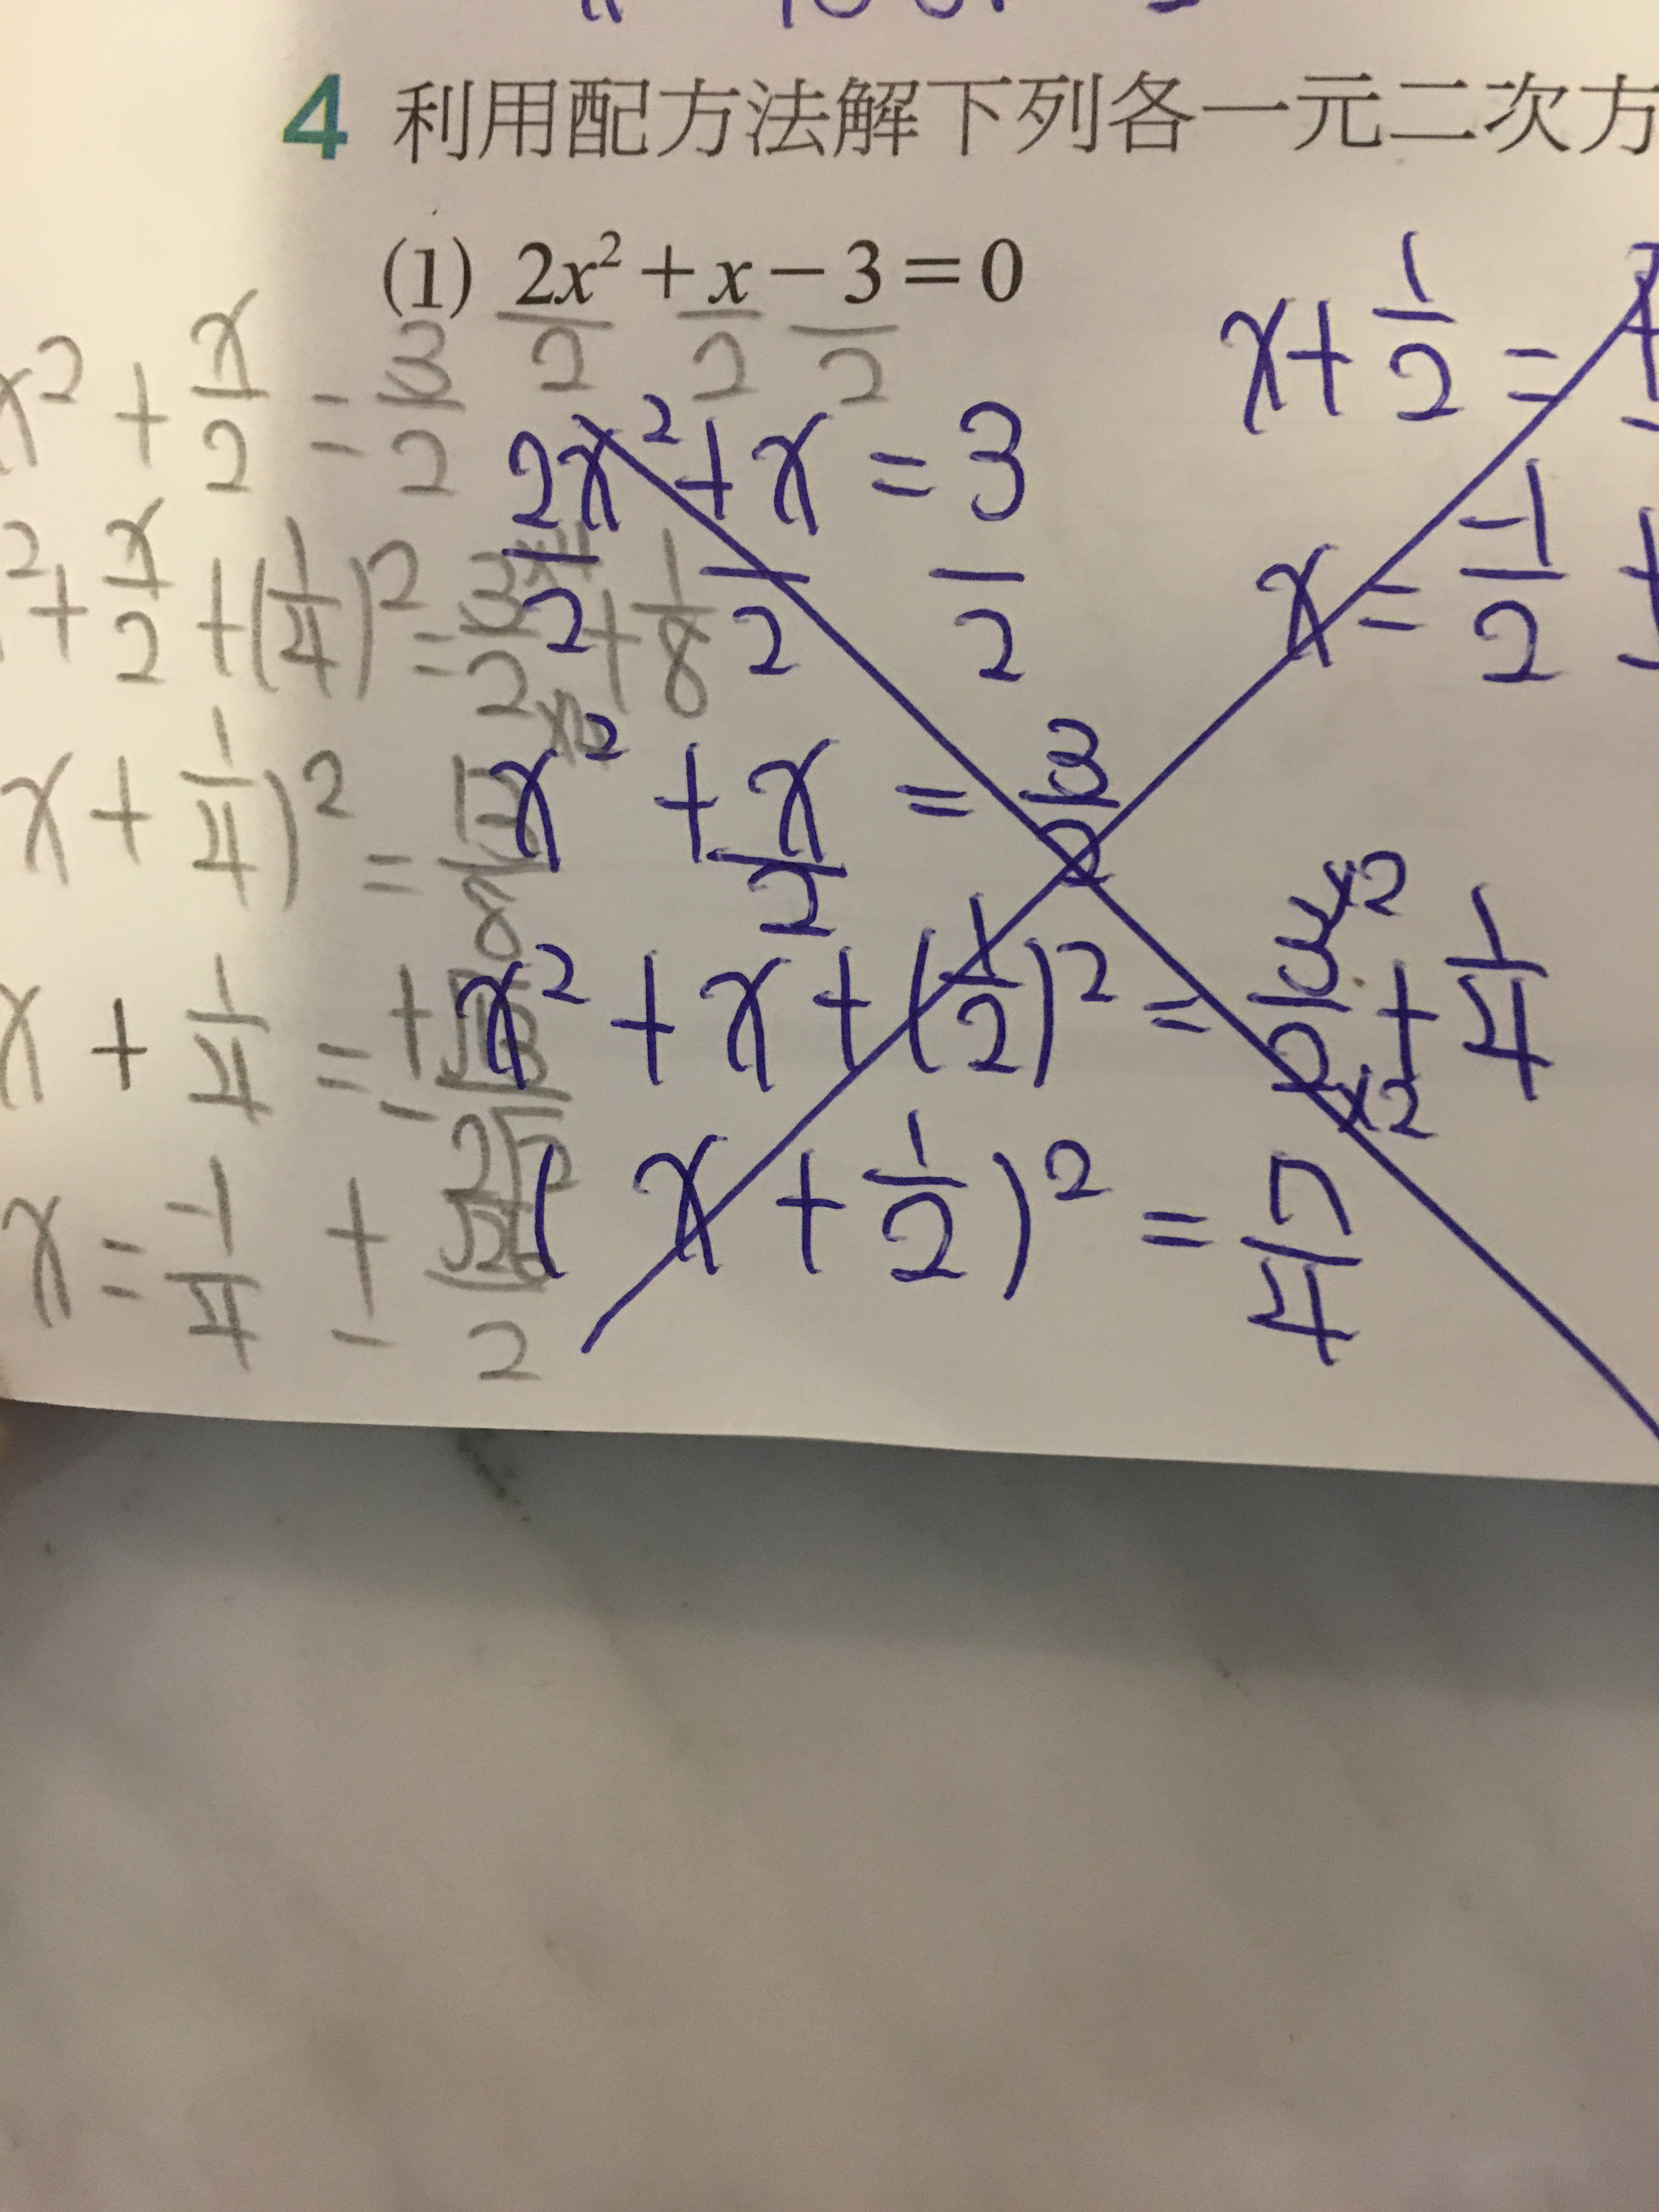 4 利用配方法解下列各一元二次方
(1) 2x² + x − 3 = 0
2 2 2
x² + x/2 = 3/2
² + x/2 + (1/4)² = 3/2 + 1/8
x + 1/4)² =
x + 1/4 = ±
x = -1/4 ± 2
2x²/2 + x/2 = 3/2
x² + x/2 = 3/2
x² + x + (1/2)² = 3×2/2×2 + 1/4
(x + 1/2)² = 7/4
x + 1/2 =
x = -1/2 ±